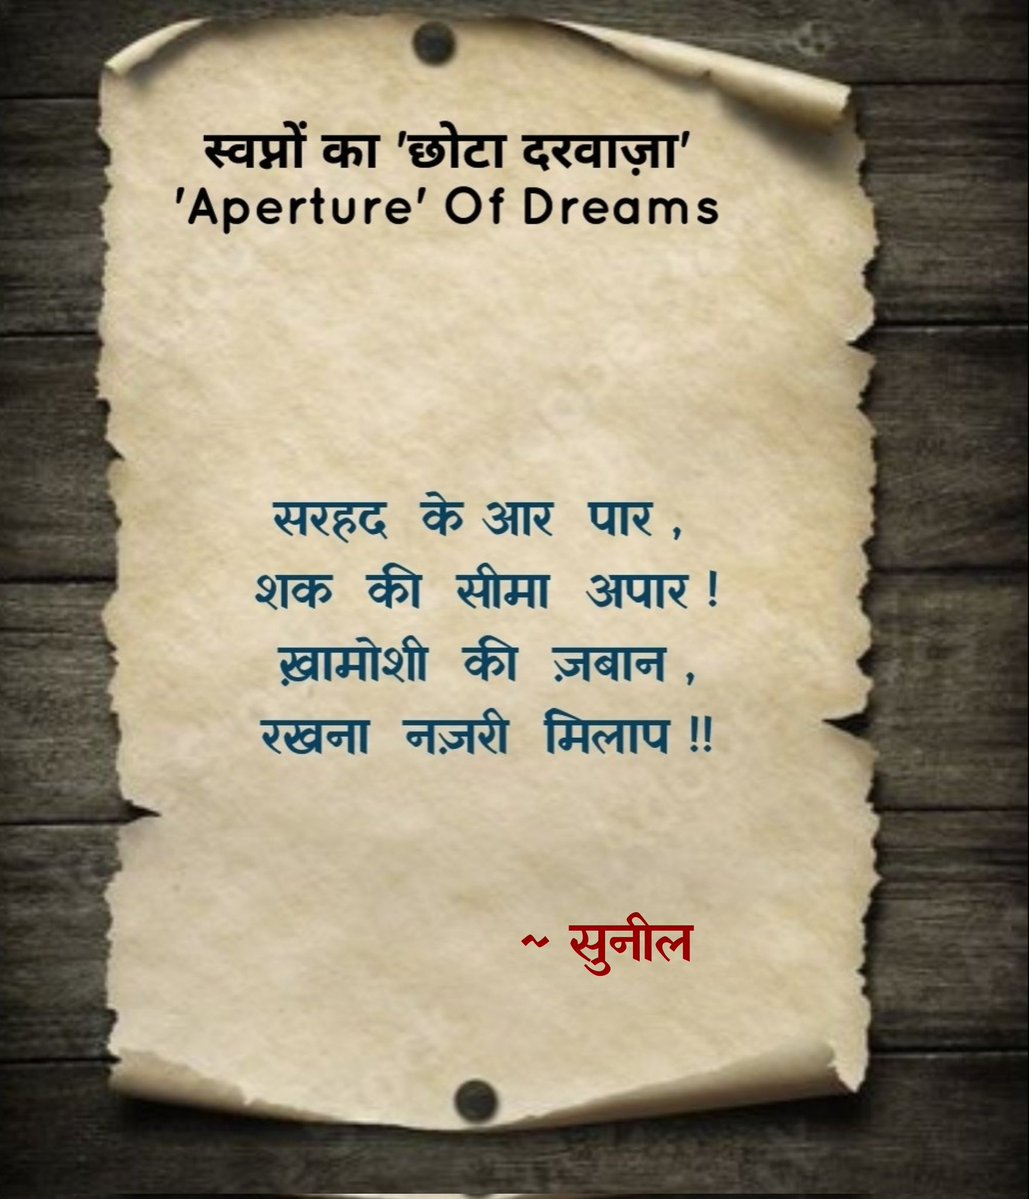 स्वप्नों का 'छोटा दरवाज़ा'
'Aperture' Of Dreams
सरहद के आर पार ,
शक की सीमा अपार !
ख़ामोशी की ज़बान ,
रखना नज़री मिलाप !!
~ सुनील